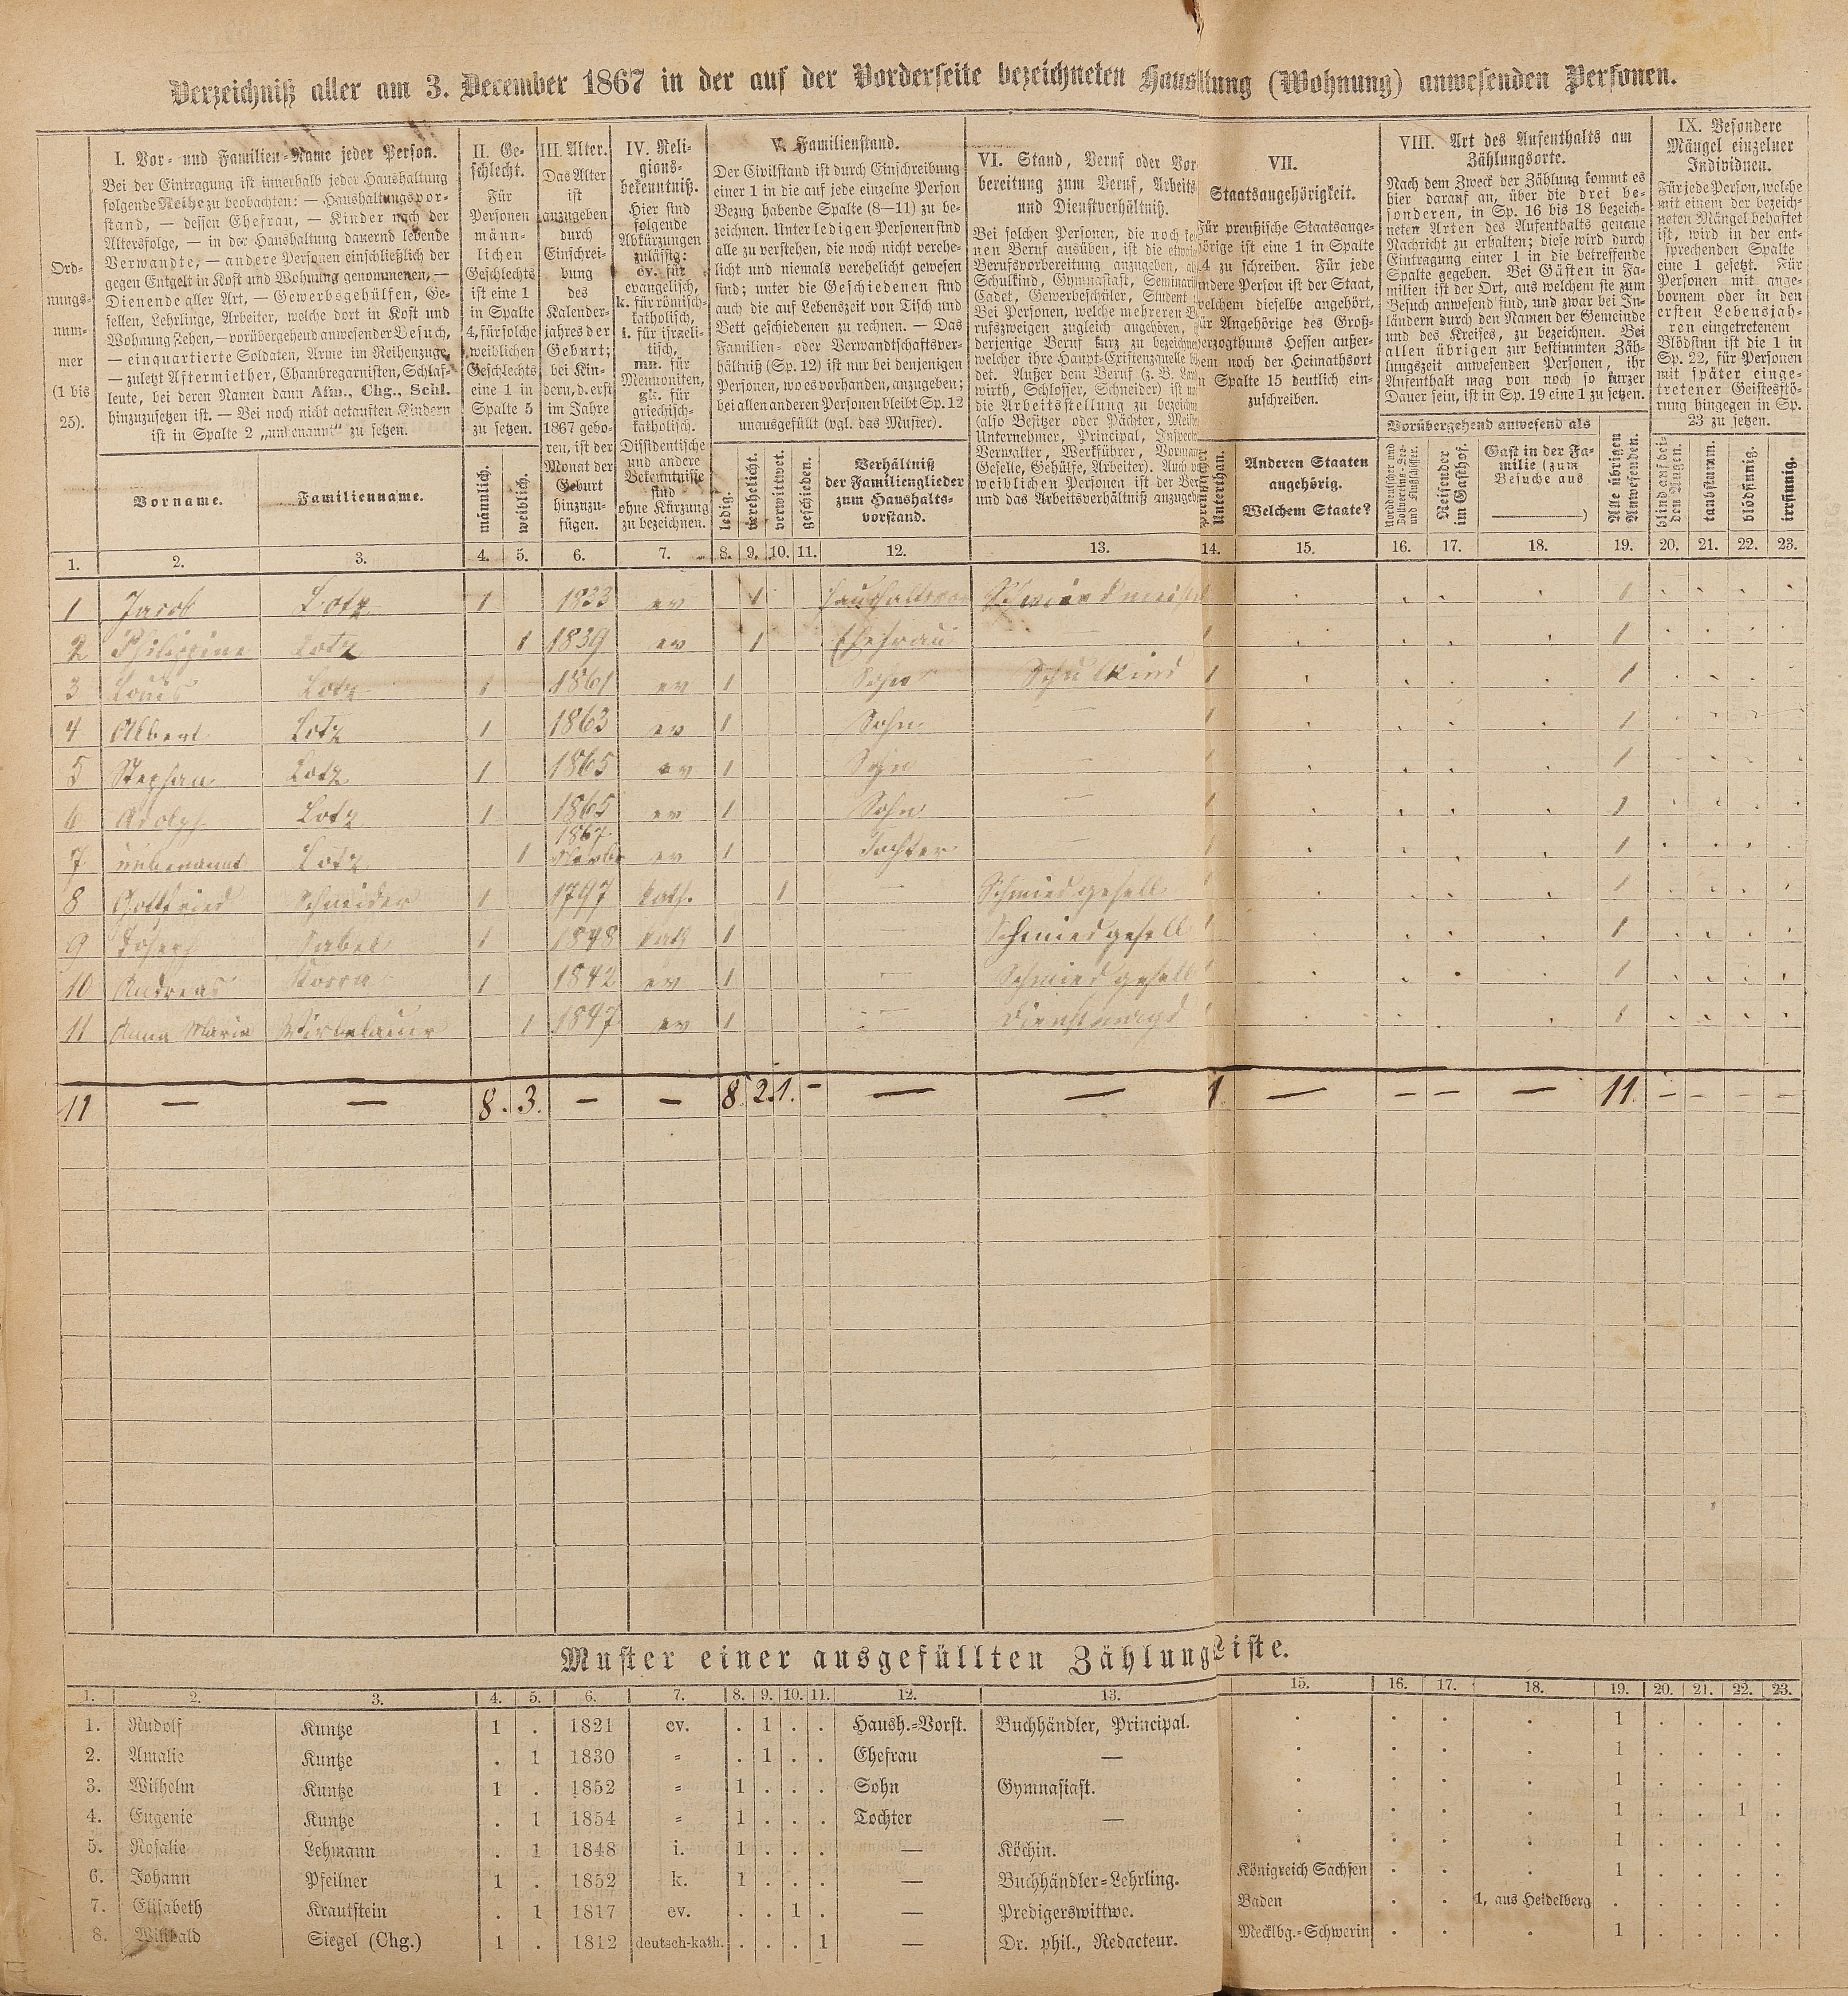 Verzeichniß aller am 3. December 1867 in der auf der Vorderseite bezeichneten Haus ltung (Wohnung) anwesenden Personen.
Ord-
nungs-
num-
mer
(1 bis
25).
I. Vor- und Familien-Name jeder Person.
Bei der Eintragung ist innerhalb jeder Haushaltung
folgende Reihe zu beobachten: — Haushaltungsvor-
stand, — dessen Ehefrau, — Kinder nach der
Altersfolge, — in der Haushaltung dauernd lebende
Verwandte, — andere Personen einschließlich der
gegen Entgelt in Kost und Wohnung genommenen, —
Dienende aller Art, — Gewerbsgehülfen, Ge-
sellen, Lehrlinge, Arbeiter, welche dort in Kost und
Wohnung stehen, — vorübergehend anwesender Besuch,
— einquartierte Soldaten, Arme im Reihenzuge,
— zuletzt Aftermiether, Chambregarnisten, Schlaf-
leute, bei deren Namen dann Afm., Chg., Schl.
hinzuzusetzen ist. — Bei noch nicht getauften Kindern
ist in Spalte 2 „unbenannt" zu setzen.
Vorname.
Familienname.
II. Ge-
schlecht.
Für
Personen
männ-
lichen
Geschlechts
ist eine 1
in Spalte
4, für solche
weiblichen
Geschlechts
eine 1 in
Spalte 5
zu setzen.
männlich.
weiblich.
III. Alter.
Das Alter
ist
anzugeben
durch
Einschrei-
bung
des
Kalender-
jahres der
Geburt;
bei Kin-
dern, d. erst
im Jahre
1867 gebo-
ren, ist der
Monat der
Geburt
hinzuzu-
fügen.
IV. Reli-
gions-
bekenntniß.
Hier sind
folgende
Abkürzungen
zulässig:
ev. für
evangelisch,
k. für römisch-
katholisch,
i. für israeli-
tisch,
mn. für
Mennoniten,
gk. für
griechisch-
katholisch.
Dissidentische
und andere
Bekenntnisse
sind
ohne Kürzung
zu bezeichnen.
V. Familienstand.
Der Civilstand ist durch Einschreibung
einer 1 in die auf jede einzelne Person
Bezug habende Spalte (8—11) zu be-
zeichnen. Unter ledigen Personen sind
alle zu verstehen, die noch nicht verehe-
licht und niemals verehelicht gewesen
sind; unter die Geschiedenen sind
auch die auf Lebenszeit von Tisch und
Bett geschiedenen zu rechnen. — Das
Familien- oder Verwandtschaftsver-
hältniß (Sp. 12) ist nur bei denjenigen
Personen, wo es vorhanden, anzugeben;
bei allen anderen Personen bleibt Sp. 12
unausgefüllt (vgl. das Muster).
ledig.
verehelicht.
verwittwet.
geschieden.
Verhältniß
der Familienglieder
zum Haushalts-
vorstand.
VI. Stand, Beruf oder Vor
bereitung zum Beruf, Arbeits
und Dienstverhältniß.
Bei solchen Personen, die noch
nen Beruf ausüben, ist die
Berufsvorbereitung anzugeben,
Schulkind, Gymnasiast,
Cadet, Gewerbeschüler, Student
Bei Personen, welche mehreren
rufszweigen zugleich angehören,
derjenige Beruf kurz zu
welcher ihre Haupt-Existenzquelle
det. Außer dem Beruf (z. B.
wirth, Schlosser, Schneider) ist
die Arbeitsstellung zu
(also Besitzer oder Pächter,
Unternehmer, Principal,
Verwalter, Werkführer,
Geselle, Gehülfe, Arbeiter). Auch
weiblichen Personen ist der
und das Arbeitsverhältniß
VII.
Staatsangehörigkeit.
Für preußische Staatsange-
hörige ist eine 1 in Spalte
4 zu schreiben. Für jede
andere Person ist der Staat,
welchem dieselbe angehört,
für Angehörige des Groß-
herzogthums Hessen außer-
dem noch der Heimathsort
in Spalte 15 deutlich ein-
zuschreiben.
Unterthan.
Anderen Staaten
angehörig.
Welchem Staate?
VIII. Art des Aufenthalts am
Zählungsorte.
Nach dem Zweck der Zählung kommt es
hier darauf an, über die drei be-
sonderen, in Sp. 16 bis 18 bezeich-
neten Arten des Aufenthalts genaue
Nachricht zu erhalten; diese wird durch
Eintragung einer 1 in die betreffende
Spalte gegeben. Bei Gästen in Fa-
milien ist der Ort, aus welchem sie zum
Besuch anwesend sind, und zwar bei In-
ländern durch den Namen der Gemeinde
und des Kreises, zu bezeichnen. Bei
allen übrigen zur bestimmten Zäh-
lungszeit anwesenden Personen, ihr
Aufenthalt mag von noch so kurzer
Dauer sein, ist in Sp. 19 eine 1 zu setzen.
Vorübergehend anwesend als
Norddeutscher und
Zollvereins-See-
und Flußschiffer.
Reisender
im Gasthof.
Gast in der Fa-
milie (zum
Besuche aus
)
Alle übrigen
Anwesenden.
IX. Besondere
Mängel einzelner
Individuen.
Für jede Person, welche
mit einem der bezeich-
neten Mängel behaftet
ist, wird in der ent-
sprechenden Spalte
eine 1 gesetzt. Für
Personen mit ange-
bornem oder in den
ersten Lebensjah-
ren eingetretenem
Blödsinn ist die 1 in
Sp. 22, für Personen
mit später einge-
tretener Geistesstö-
rung hingegen in Sp.
23 zu setzen.
blind auf bei-
den Augen.
taubstumm.
blödsinnig.
irrsinnig.
1. 2. 3. 4. 5. 6. 7. 8. 9. 10. 11. 12. 13. 14. 15. 16. 17. 18. 19. 20. 21. 22. 23.
1 Jacob Lotz 1 1833 ev 1 1
2 Philippine Lotz 1 1839 ev 1 Ehefrau — 1 1
3 Louis Lotz 1 1861 ev 1 Sohn Schulkind 1 1
4 Albert Lotz 1 1863 ev 1 Sohn — 1 1
5 Stephan Lotz 1 1865 ev 1 Sohn — 1 1
6 Adolph Lotz 1 1865 ev 1 Sohn — 1 1
7 unbenannt Lotz 1 1867 ev 1 Tochter — 1 1
8 Gottfried Schneider 1 1797 kath. 1 — Schmiedgesell 1 1
9 Joseph Sabel 1 1848 kath 1 — Schmiedgesell 1 1
10 Andreas 1 1842 ev 1 — Schmiedgesell 1 1
11 Anna Maria 1 1847 ev 1 — Dienstmagd 1 1
11 — — 8. 3. — — 8. 2. 1. — — — 1 — — — — 11. — — — —
Muster einer ausgefüllten Zählung Liste.
1. 2. 3. 4. 5. 6. 7. 8. 9. 10. 11. 12. 13. 15. 16. 17. 18. 19. 20. 21. 22. 23.
1. Rudolf Kuntze 1 . 1821 ev. . 1 . . Haush.-Vorst. Buchhändler, Principal. . . . . 1 . . . .
2. Amalie Kuntze . 1 1830 = . 1 . . Ehefrau — . . . . 1 . . . .
3. Wilhelm Kuntze 1 . 1852 = 1 . . . Sohn Gymnasiast. . . . . 1 . . . .
4. Eugenie Kuntze . 1 1854 = 1 . . . Tochter — . . . . 1 . . 1 .
5. Rosalie Lehmann . 1 1848 i. 1 . . . — Köchin. . . . . 1 . . . .
6. Johann Pfeilner 1 . 1852 k. 1 . . . — Buchhändler-Lehrling. Königreich Sachsen . . . 1 . . . .
7. Elisabeth Krautstein . 1 1817 ev. . . 1 . — Predigerswittwe. Baden . . 1, aus Heidelberg . . . . .
8. Willbald Siegel (Chg.) 1 . 1812 deutsch-kath. . . . 1 — Dr. phil., Redacteur. Mecklbg.-Schwerin . . . 1 . . . .